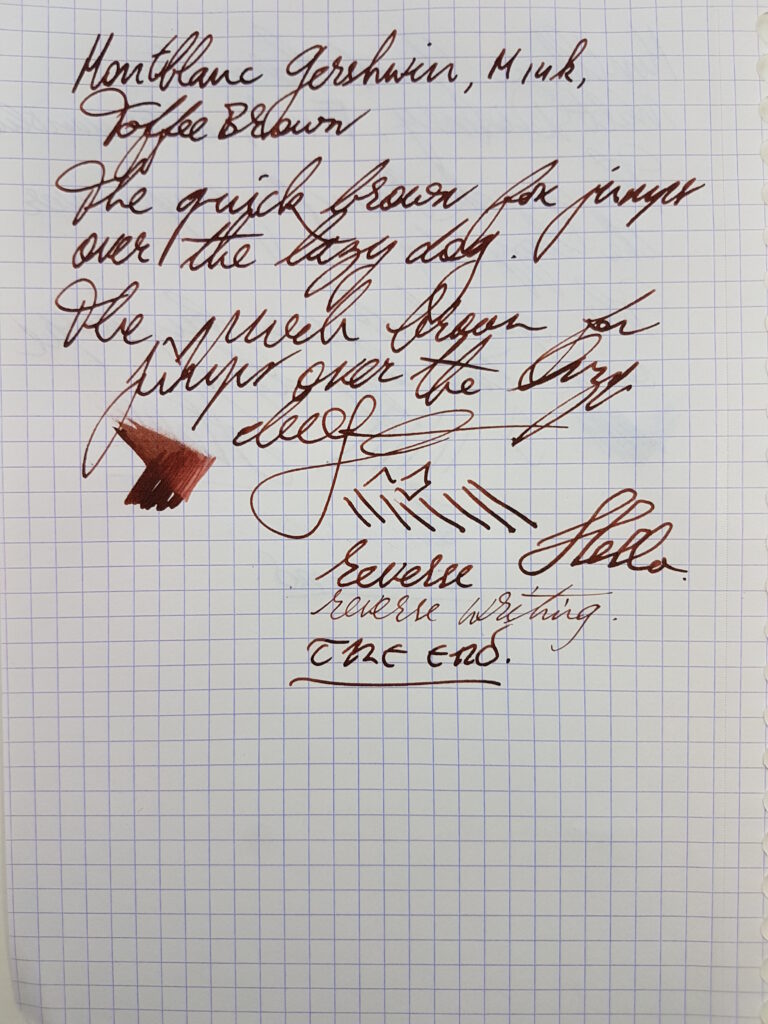 Montblanc Gershwin, M ink,
Toffee Brown
The quick brown fox jumps
over the lazy dog.
The quick brown fox
jumps over the lazy
Hello.
reverse
reverse writing.
THE END.